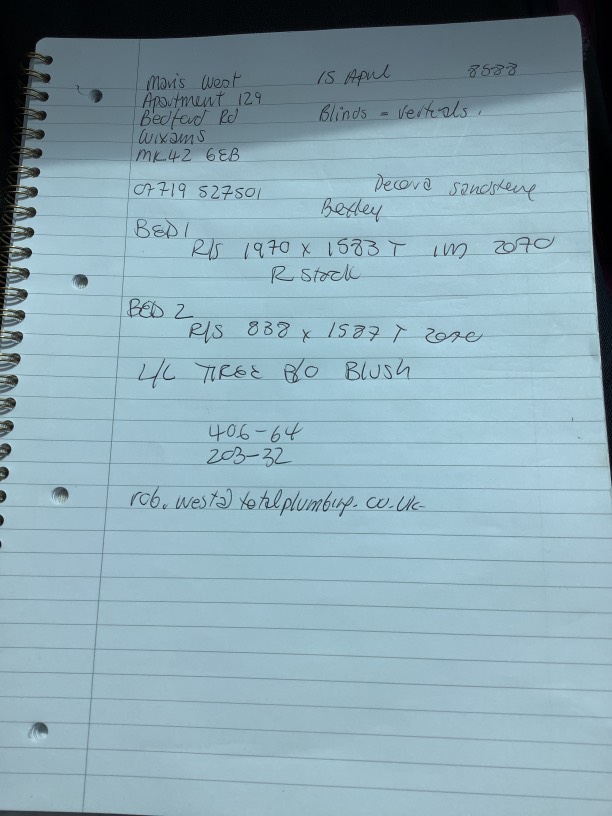 Mavis West 15 April 8588
Apartment 129
Bedford Rd Blinds = Verticals.
Wixams
MK42 6EB
07719 527501 Decora Sandstone
Bexley
BED 1
R/S 1970 x 1583 T 1m 2070
R Stack
BED 2
R/S 838 x 1587 T
L/C TIREE B/O BLUSH
406-64
203-32
rob.west@totalplumbing.co.uk